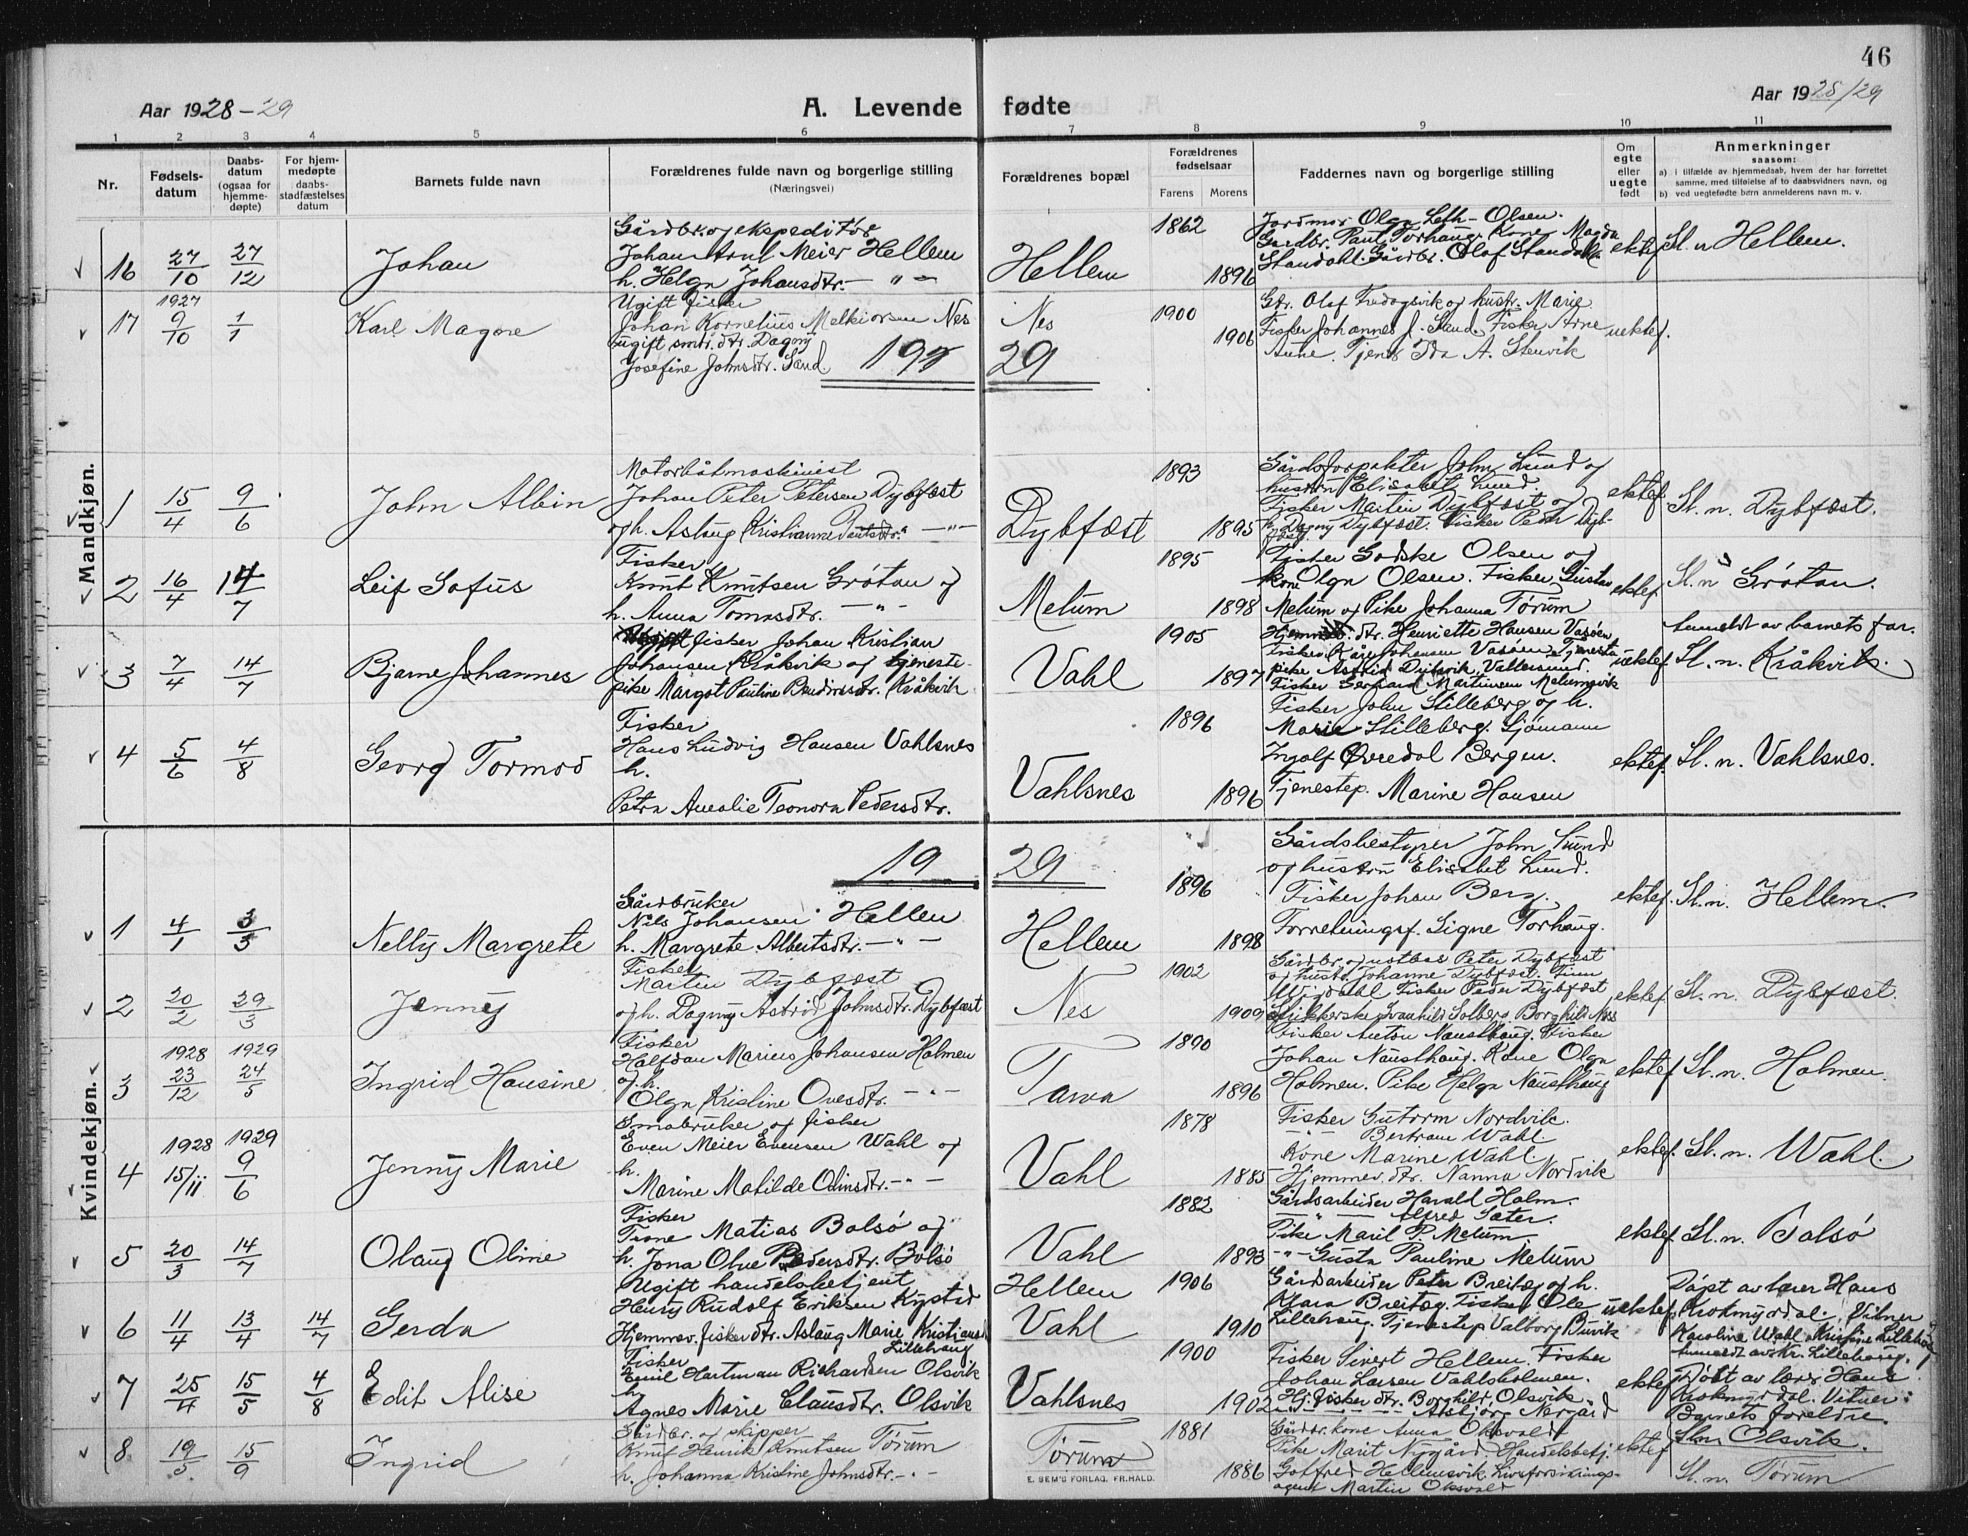 46
Aar 1928-29
A. Levende fødte
Aar 1928/29
1 2 3 4 5 6 7 8 9 10 11
Nr.
Fødsels-
datum
Daabs-
datum
(ogsaa for
hjemme-
døpte)
For hjem-
medøpte
daabs-
stadfæstelses
datum
Barnets fulde navn
Forældrenes fulde navn og borgerlige stilling
(Næringsvei)
Forældrenes bopæl
Forældrenes
fødselsaar
Farens Morens
Faddernes navn og borgerlige stilling
Om
egte
eller
uegte
født
Anmerkninger
saasom:
a) i tilfælde av hjemmedaab, hvem der har forrettet
samme, med tilføielse af to daabsvidners navn, og
b) ved uegtefødte børn anmelderens navn m. v.
Mandkjøn.
16 27/10 27/12 Johan
Gårdbr. og ekspeditør
Johan Arnt Meier Hellem
h. Helga Johansdtr. - " -
Hellem
1862
1896
Jordmor Olga Leth-Olsen.
Gardbr. Paul Torhaug. Kone Magda
Standahl. Gårdbr. Olaf Standahl
ektef. Sl. n Hellem.
17 1927 9/10 1/1 Karl Magne
Ugift fisker
Johan Kornelius Melkiorsen Nes
ugift smbr. dtr. Dagny
Josefine Johnsdtr. Sand.
Nes
1900
1906
Gbr. Olaf Fredagsvik og hustr. Marie
Fisker Johannes J. Sand. Fisker Arne
Aune. Tjen. Ida A. Stenvik
uektef.
1929
1 15/4 9/6 John Albin
Motorbåtmaskinist
Johan Peter Petersen Dybfæst
og h. Aslaug Kristianne Paulsdtr. -"-
Dybfæst
1893
1895
Gårdsforpakter John Lund og
hustru Elisabet Lund.
Fisker Martin Dybfæst og
h. Dagny Dybfæst. Fisker Peder Dyb-
fæst
ektef. Sl. n. Dybfæst.
2 16/4 14/7 Leif Sofus
Fisker
Knut Knutsen Grøtan og
h. Anna Tomasdtr. - " -
Melum
1895
1898
Fisker Godske Olsen og
kone Olga Olsen. Fisker Gustav
Melum og Pike Johanna Tørum
ektef. Sl. n Grøtan.
3 7/4 14/7 Bjarne Johannes
fisker Johan Kristian
Johansen Kråkvik og tjeneste-
pike Margot Pauline Bendixsdtr. Kråkvik
Vahl
1905
1897
Hjemmev. dtr. Henriette Hansen Vasøen
Fisker Kåre Johansen Vasøen. Tjeneste
pike Astrid Dybvik, Vallersund.
Fisker Gerhard Martinsen Melumsvik
uektef.
Anmeldt av barnets far.
Sl. n. Kråkvik.
4 5/6 4/8 Georg Tormod
Fisker
Hans Ludvig Hansen Vahlsnes
h.
Petra Amalie Teonora Pedersdtr.
Vahlsnes
1896
1896
Fisker John Stilleberg og h.
Marie Stilleberg. Sjømann
Ingolf Øvredal Bergen.
Tjenestep. Marine Hansen
ektef. Sl. n. Vahlsnes.
1929
Kvindekjøn.
1 4/1 3/3 Nelly Margrete
Gårdbruker
Nils Johansen Hellem
h. Margrete Albertsdtr. - " -
Hellem
1896
1898
Gårdsbestyrer John Lund
og hustru Elisabet Lund.
Fisker Johan Berg.
Forretningsf. Signe Torhaug.
ektef. Sl. n. Hellem.
2 20/2 29/3 Jenny
Fisker
Martin Dybfæst
og h. Dagny Astrid Johnsdtr. Dybfæst
Nes
1902
1909
Gårdbr. og notbas Peter Dybfæst
og hustr. Johanne Dybfæst.
Fisker Peder Dybfæst
Strikkerske Svanhild Solberg Borghild Næss
ektef. Sl. n. Dybfæst.
3 1928 23/12 1929 24/5 Ingrid Hansine
Fisker
Halfdan Marius Johansen Holmen
og h.
Olga Kristine Ovesdtr. - " -
Tarva
1890
1896
Fisker Anton Nausthaug. Fisker
Johan Nausthaug. Kone Olga
Holmen. Pike Helga Nausthaug
ektef. Sl. n. Holmen.
4 1928 15/11 1929 9/6 Jenny Marie
Småbruker og fisker
Even Meier Evensen Wahl og
h.
Marine Matilde Olinsdtr. - " -
Vahl
1878
1885
Fisker Gutorm Nordvik.
- " - Bertram Wahl.
Kone Marine Wahl.
Hjemmev. dtr. Nanna Nordvik
ektef. Sl. n. Wahl.
5 20/3 14/7 Olaug Oline
Fisker
Trone Matias Bolsø og
h. Jona Olve Pedersdtr. Bolsø
Vahl
1882
1893
Gårdsarbeider Harald Holm.
- " - Alfred Sæter.
Pike Maril P. Melum.
- " - Gusta Pauline Melum
ektef. Sl. n. Bolsø
6 11/4 13/4 14/7 Gerda
Ugift handelsbetjent
Henry Rudolf Eriksen Kystad
Hjemmev. fisker dtr. Aslaug Marie Kristiansd.
Lillehaug
Hellem
Vahl
1906
1910
Gårdarbeider Peter Breiteg og h.
Klara Breiteg. Fisker Ole
Lillehaug. Tjenestep Valborg Buvik
uektef.
Døpt av lærer Hans
Krokmyrdal. Vitner
Karoline Wahl. Kristine Lillehaug
Anmeldt av Kr. Lillehaug.
7 25/4 15/5 4/8 Edit Alise
Fisker
Emil Hartman Richardsen Olsvik
h.
Agnes Marie Clausdtr. Olsvik
Vahlsnes
1900
1902
Fisker Sivert Hellem. Fisker
Johan Larsen Vahlsholmen.
Hj. fisker dtr. Borghild Olsvik
- " - Asbjørg Nergård
ektef.
Døbt av lærer Hans
Krokmyrdal. Vitner:
Barnets foreldre.
Sl. n. Olsvik.
8 19/5 15/9 Ingrid
Gårdbr. og skipper
Knut Henrik Knutsen Tørum
h. Johanna Kristine Johnsdtr. - " -
Tørum
1881
1886
Gårdbr. kone Anna Oksvold
Pike Marit Nygård, Handelsbetj.
Gotfred Hellemsvik. Livsforsikrings-
agent Martin Oksvold
ektef. Sl. n. Tørum
E. SEM'S FORLAG, FR.HALD.